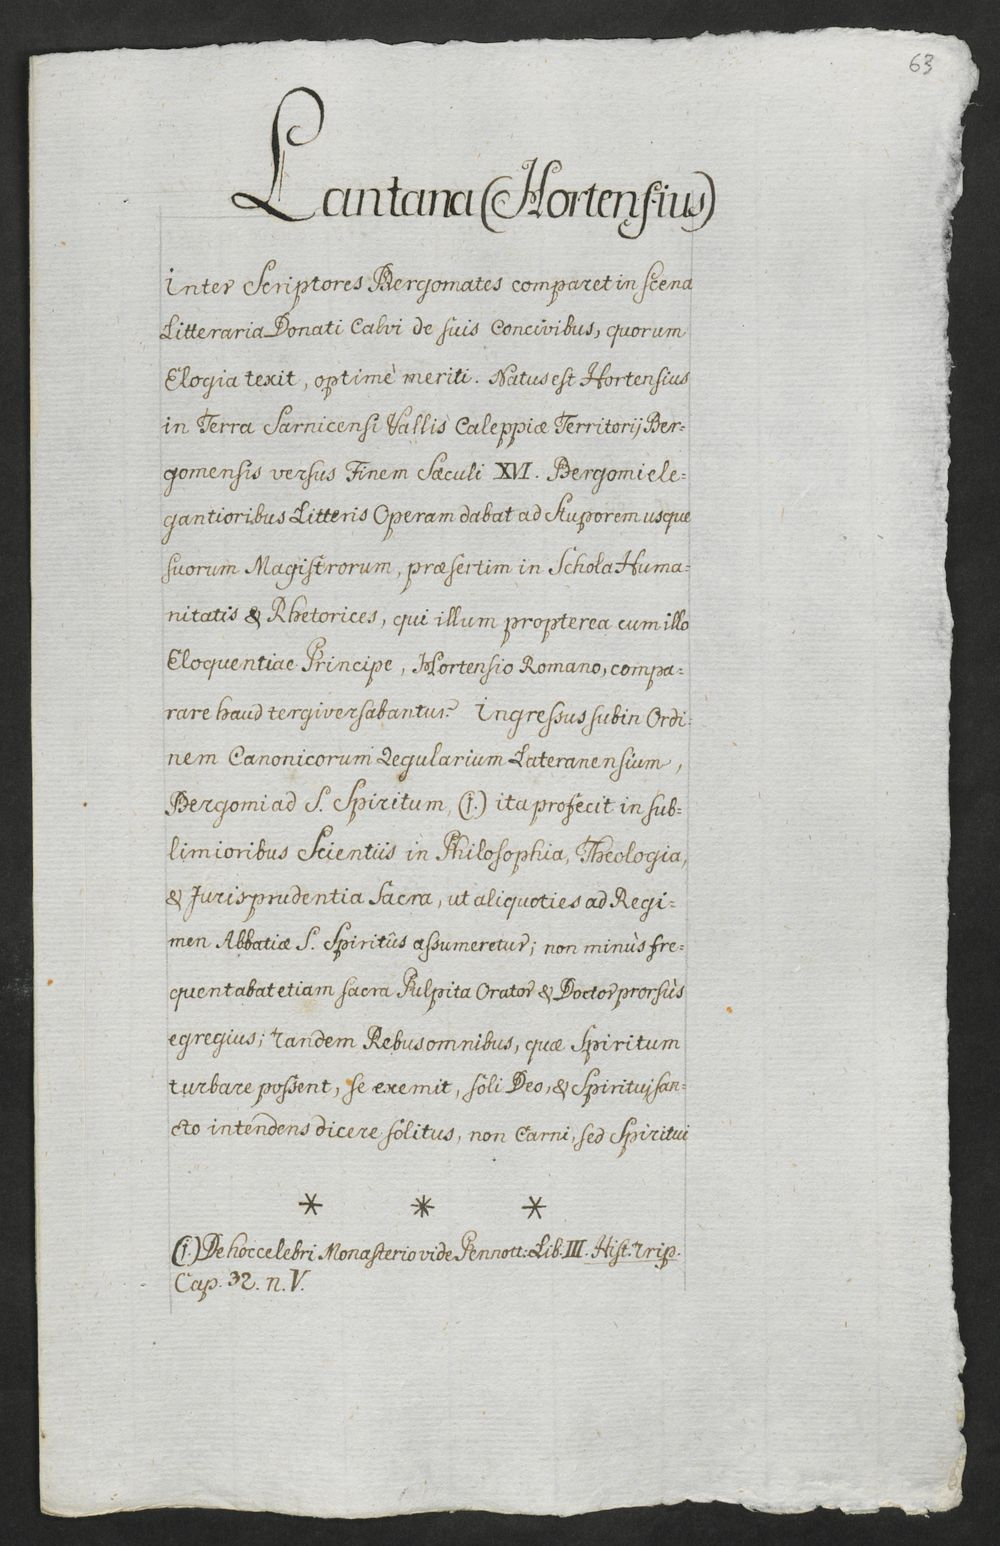 63
Lantana (Hortensius)
Inter Scriptores Bergomates comparet in scena
Litteraria Donati Calvi de suis Concivibus, quorum
Elogia texit, optimè meriti. Natus est Hortensius
in Terra Sarnicensi Vallis Caleppiæ Territorij Ber=
gomensis versus Finem Sæculi XVI. Bergomi ele=
gantioribus Litteris Operam dabat ad Stuporem usque
suorum Magistrorum, præsertim in Schola Huma=
nitatis & Rhetorices, qui illum propterea cum illo
Eloquentiae Principe, Hortensio Romano, compa=
rare haud tergiversabantur. Ingressus subin Ordi=
nem Canonicorum Regularium Lateranensium,
Bergomi ad S. Spiritum, (1.) ita profecit in sub=
limioribus Scientiis in Philosophia, Theologia,
& Jurisprudentia Sacra, ut aliquoties ad Regi=
men Abbatiæ S. Spiritûs assumeretur; non minùs fre=
quentabat etiam sacra Pulpita Orator & Doctor prorsùs
egregius; tandem Rebus omnibus, quæ Spiritum
turbare possent, se exemit, soli Deo, & Spirituj san=
cto intendens dicere solitus, non Carni, sed Spiritui
* * *
(1.) De hoc celebri Monasterio vide Pennott: Lib. III. Hist. Trip.
Cap. 32. n. V.